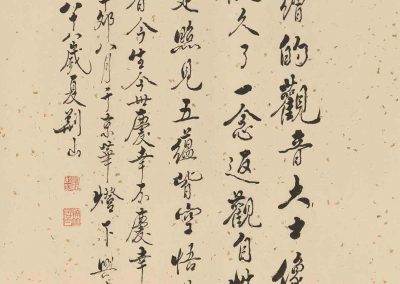 繪的觀音大士像
久了一念返觀自
照見五蘊皆空悟
今生今世慶幸不慶幸
卯八月于京華燈下興
八十八歲夏荊山